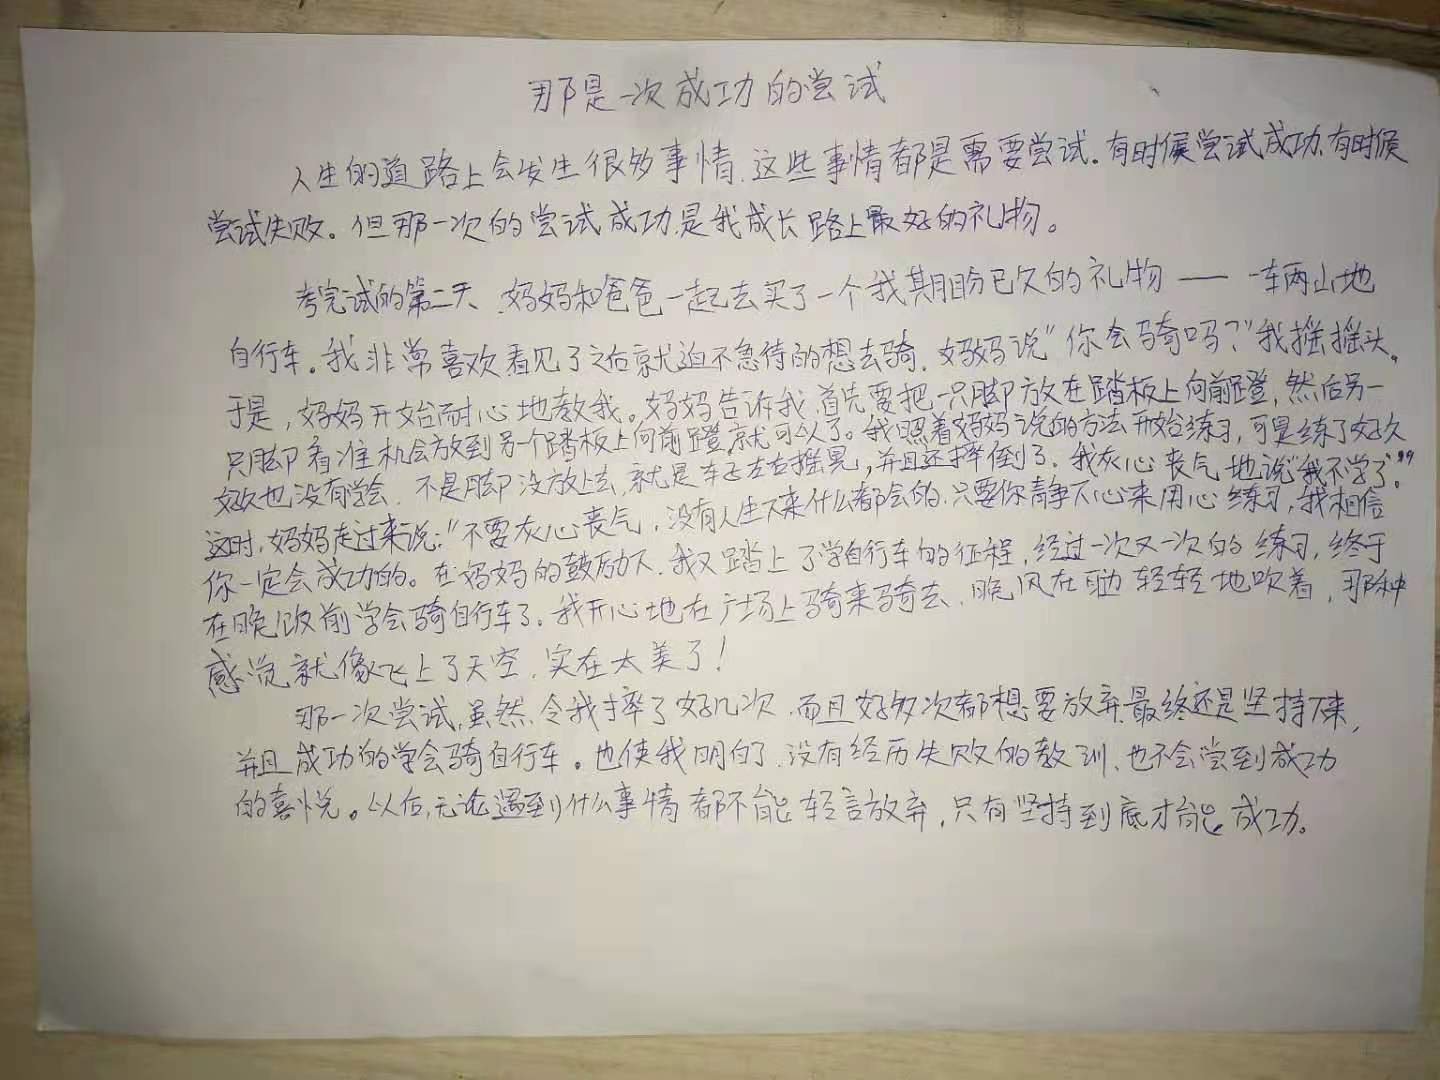 那是一次成功的尝试
人生的道路上会发生很多事情,这些事情都是需要尝试。有时候尝试成功,有时候
尝试失败。但那一次的尝试成功,是我成长路上最好的礼物。
考完试的第二天,妈妈和爸爸一起去买了一个我期盼已久的礼物——一车两山地
自行车。我非常喜欢看见了之后就迫不急待的想去骑,妈妈说"你会骑吗?"我摇摇头。
于是,妈妈开始耐心地教我。妈妈告诉我,首先要把一只脚放在踏板上向前蹬,然后另一
只脚看准机会放到另一个踏板上向前蹬,就可以了。我照着妈妈说的方法开始练习,可是练了好久
好久也没有学会,不是脚没放上去,就是车子左右摇晃,并且还摔倒了。我灰心丧气地说"我不学了。"
这时,妈妈走过来说:"不要灰心丧气,没有人生下来什么都会的,只要你静下心来用心练习,我相信
你一定会成功的。在妈妈的鼓励下,我又踏上了学自行车的征程,经过一次又一次的练习,终于
在晚饭前学会骑自行车了。我开心地在广场上骑来骑去,晚风在耳边轻轻地吹着,那种
感觉就像飞上了天空,实在太美了!
那一次尝试,虽然,令我摔了好几次,而且好多次都想要放弃,最终还是坚持下来,
并且成功的学会骑自行车。也使我明白了,没有经历失败的教训,也不会尝到成功
的喜悦。以后,无论遇到什么事情都不能轻言放弃,只有坚持到底才能成功。